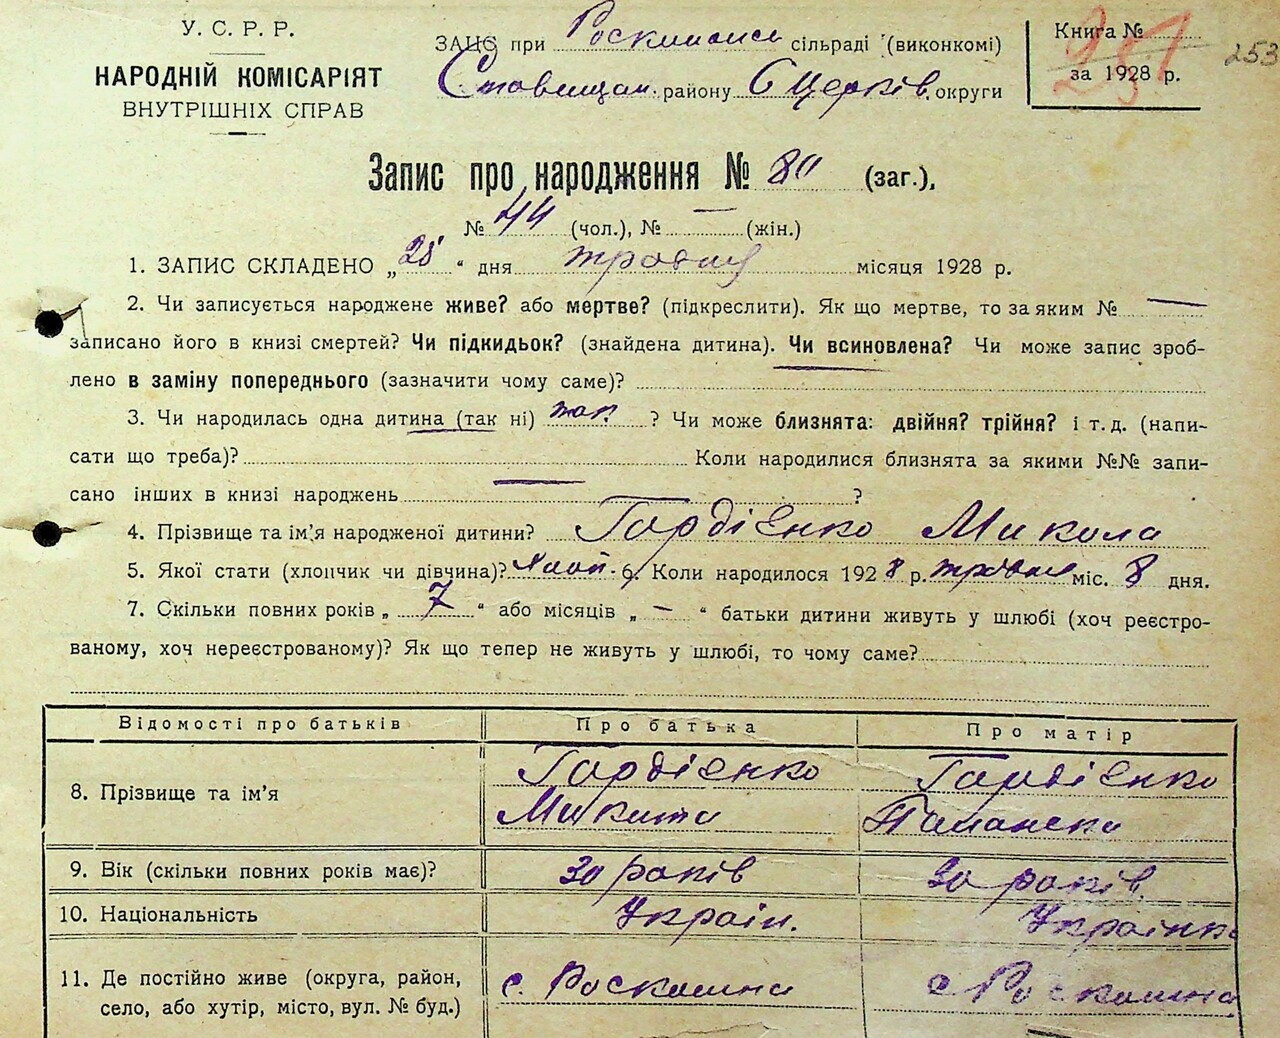 У. С. Р. Р.
НАРОДНІЙ КОМІСАРІЯТ
ВНУТРІШНІХ СПРАВ
ЗАЦС при сільраді (виконкомі)
Ставищан. району Б Церків. округи
Книга №
за 1928 р.
251
253
Запис про народження № 80 (заг.),
№ 44 (чол.), № — (жін.)
1. ЗАПИС СКЛАДЕНО „ " дня травня місяця 1928 р.
2. Чи записується народжене живе? або мертве? (підкреслити). Як що мертве, то за яким № —
записано його в книзі смертей? Чи підкидьок? (знайдена дитина). Чи всиновлена? Чи може запис зроб-
лено в заміну попереднього (зазначити чому саме)?
3. Чи народилась одна дитина (так ні) так ? Чи може близнята: двійня? трійня? і т. д. (напи-
сати що треба)? Коли народилися близнята за якими №№ запи-
сано інших в книзі народжень — ?
4. Прізвище та ім'я народженої дитини? Гордієнко Микола
5. Якої стати (хлопчик чи дівчина)? 6. Коли народилося 1928 р. травня міс. 8 дня.
7. Скільки повних років „ 7 " або місяців „ — " батьки дитини живуть у шлюбі (хоч реєстро-
ваному, хоч нереєстрованому)? Як що тепер не живуть у шлюбі, то чому саме?
Відомості про батьків Про батька Про матір
8. Прізвище та ім'я Гордієнко Микита Гордієнко
9. Вік (скільки повних років має)? 30 років 30 років
10. Національність Україн. Українка
11. Де постійно живе (округа, район, с. Роскошна с Роскошна
село, або хутір, місто, вул. № буд.)